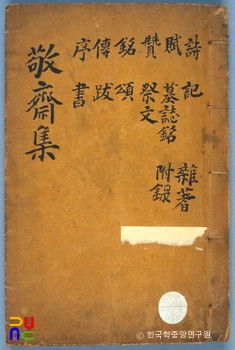 詩 記
賦 墓誌銘
贊 祭文
銘 頌
傳 跋
序 書
雜著
附錄
敬齋集
© 한국학중앙연구원